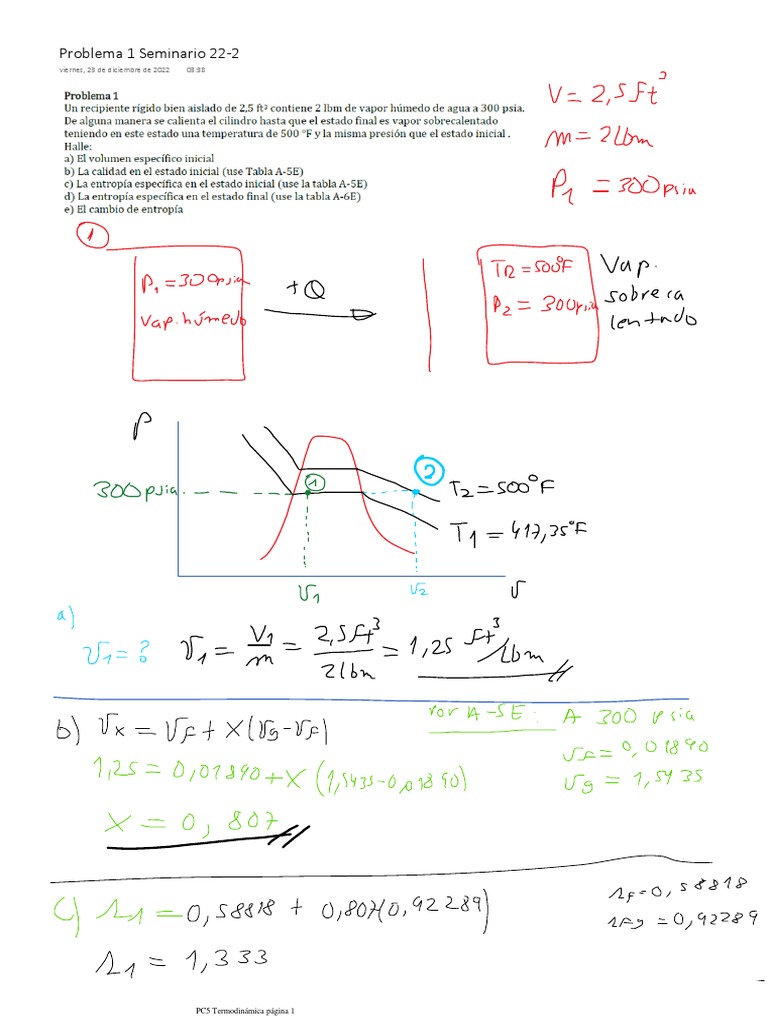 Problema 1 Seminario 22-2
viernes, 23 de diciembre de 2022 08:38
Problema 1
Un recipiente rígido bien aislado de 2,5 ft³ contiene 2 lbm de vapor húmedo de agua a 300 psia.
De alguna manera se calienta el cilindro hasta que el estado final es vapor sobrecalentado
teniendo en este estado una temperatura de 500 °F y la misma presión que el estado inicial .
Halle:
a) El volumen específico inicial
b) La calidad en el estado inicial (use Tabla A-5E)
c) La entropía específica en el estado inicial (use la tabla A-5E)
d) La entropía específica en el estado final (use la tabla A-6E)
e) El cambio de entropía
V = 2,5 Ft³
m = 2 lbm
P1 = 300 psia
1
P1 = 300 psia
Vap. húmedo
+Q
T2 = 500°F
P2 = 300 psia
Vap.
sobreca
lentado
P
300 psia
1
2
T2 = 500°F
T1 = 417,35°F
v1
v2
v
a)
v1 = ?
v1 = V1/m = 2,5 Ft³/2 lbm = 1,25 Ft³/lbm
b) vx = vF + X(vg - vF)
Por A-5E: A 300 psia
vF = 0,01890
vg = 1,5435
1,25 = 0,01890 + X (1,5435 - 0,01890)
X = 0,807
c) s1 = 0,58818 + 0,807(0,92289)
sF = 0,58818
sFg = 0,92289
s1 = 1,333
PC5 Termodinámica página 1